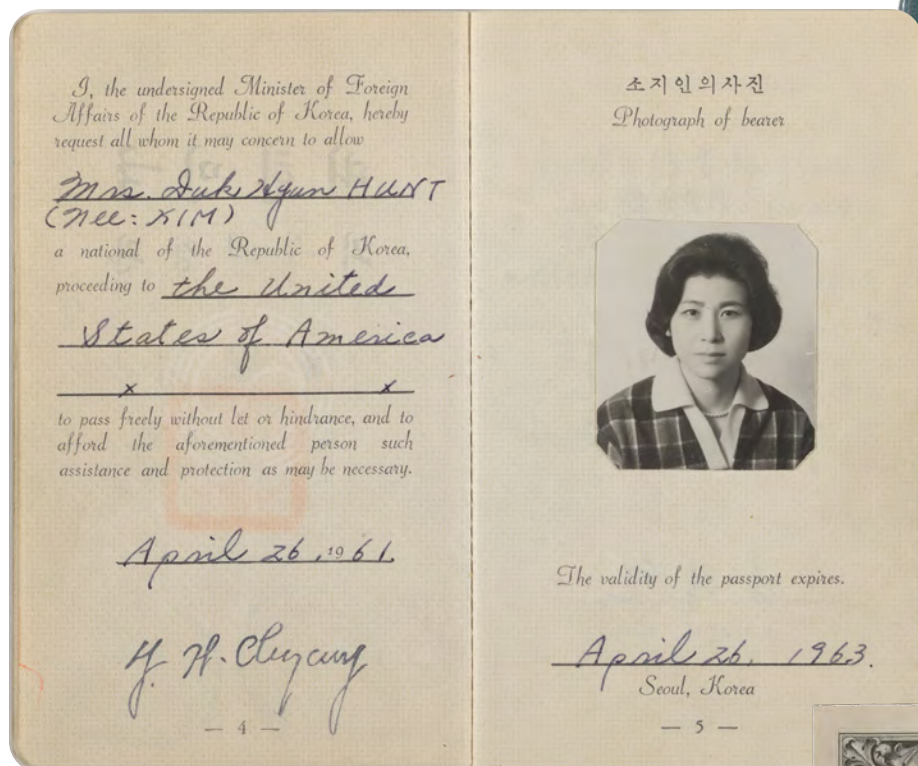 I, the undersigned Minister of Foreign
Affairs of the Republic of Korea, hereby
request all whom it may concern to allow
Mrs. Duk Hyun HUNT
(Nee: KIM)
a national of the Republic of Korea,
proceeding to the United
States of America
x x
to pass freely without let or hindrance, and to
afford the aforementioned person such
assistance and protection as may be necessary.
April 26, 1961.
— 4 —
소지인의사진
Photograph of bearer
The validity of the passport expires.
April 26, 1963.
Seoul, Korea
— 5 —